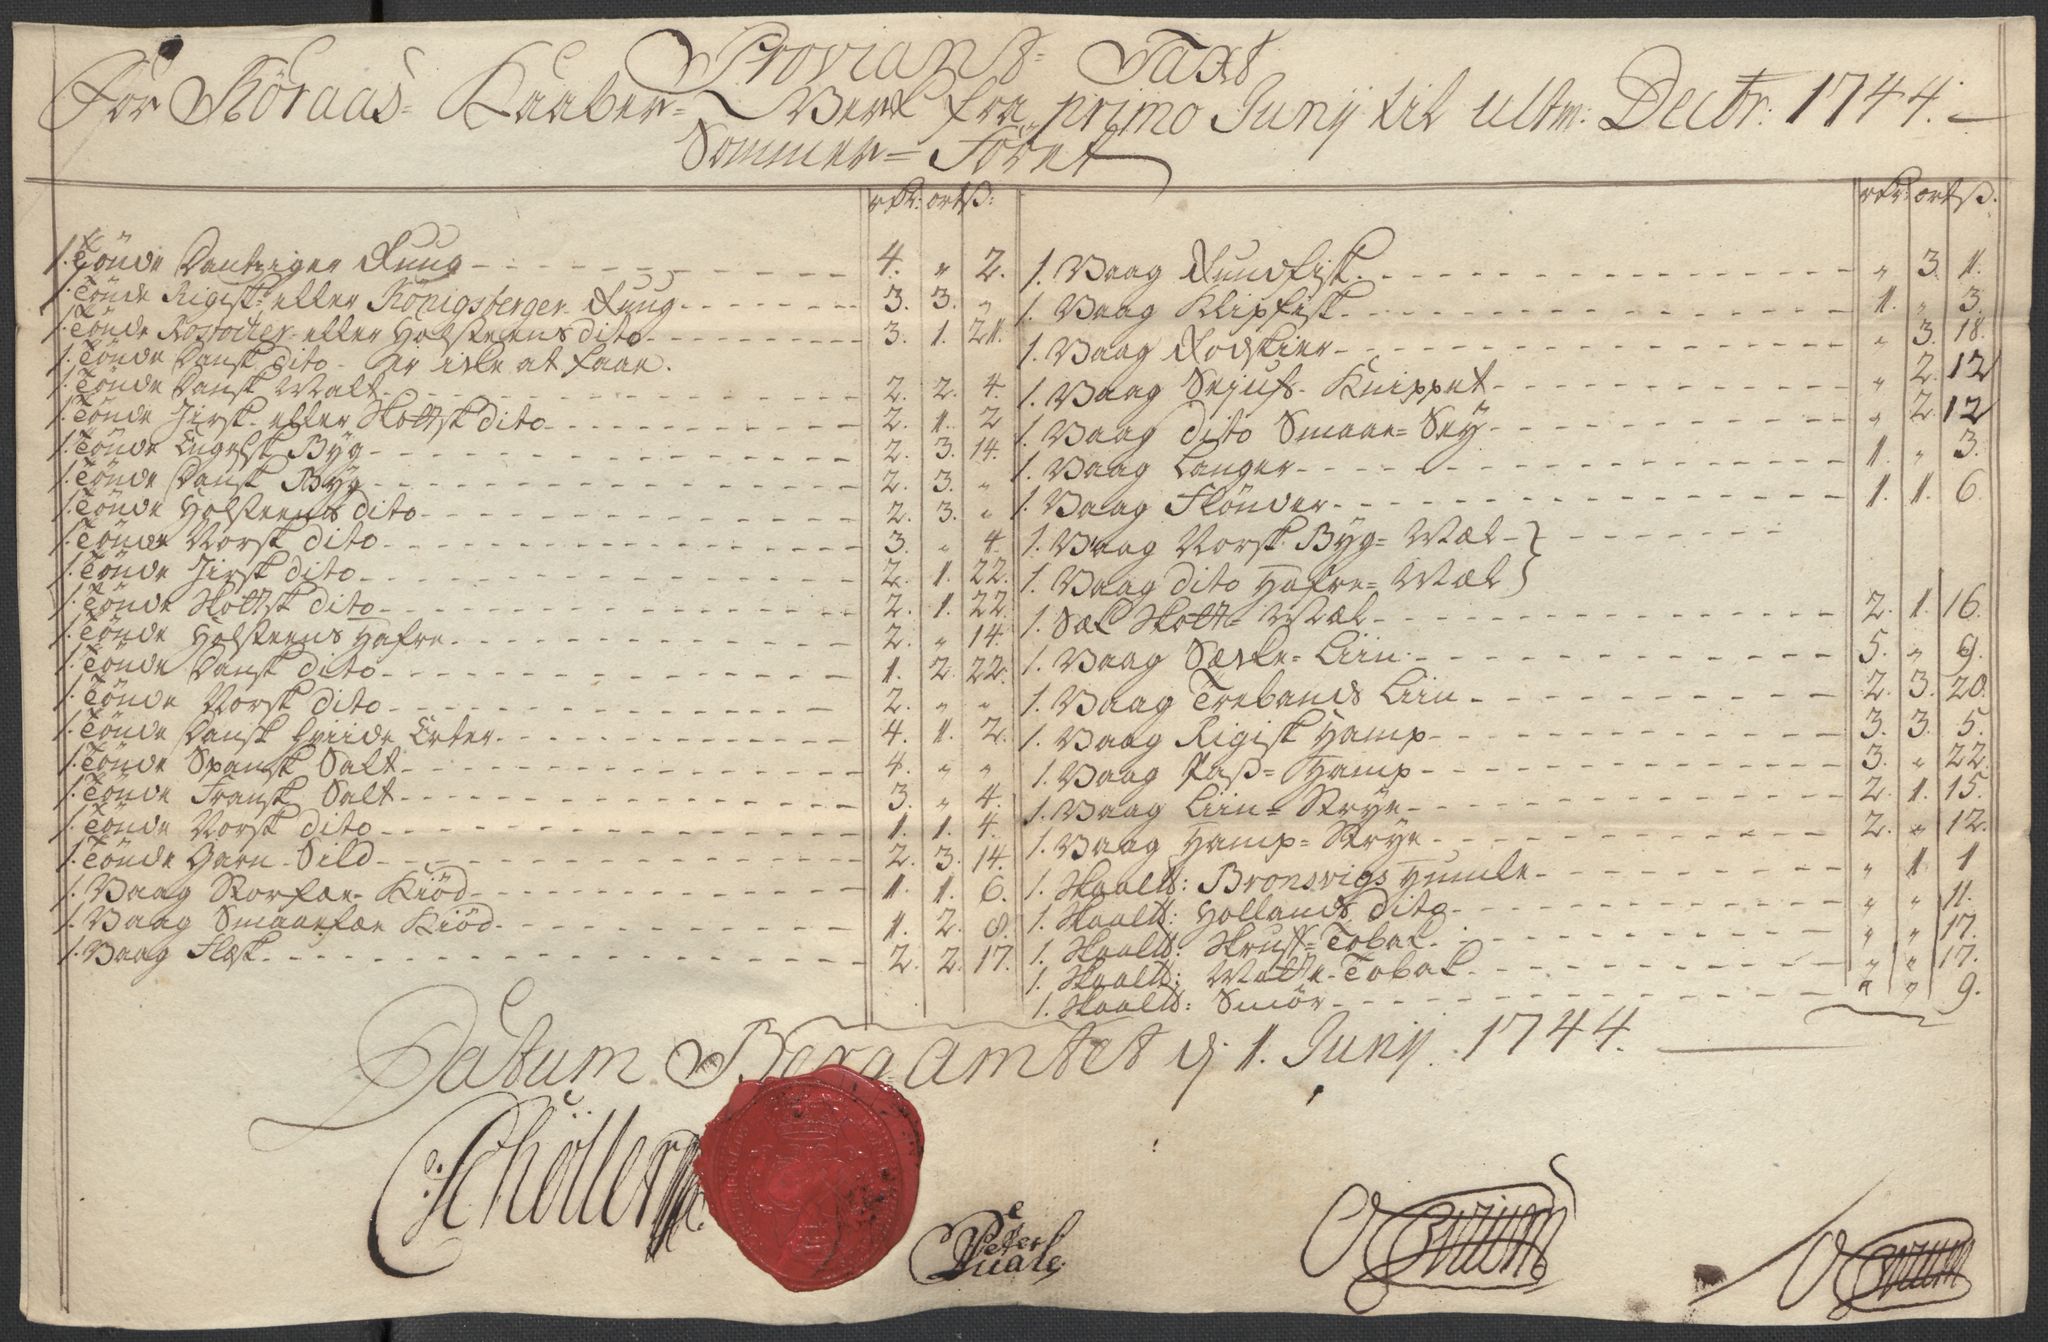 Proviant- Taxt
For Röraas- Kaaber- Werk fra primo Junij til ultm: Decbr: 1744.
Sommer- Föret
rdr: ort ß:
1. Tönde Dantziger Ruug 4. " 2.
1. Tönde Rigisk- eller Königsberger Ruug 3. 3. "
1. Tönde Rostocker- eller Holsteens dito 3. 1. 21.
1. Tönde Dansk dito - er icke at faae.
1. Tönde Dansk Malt 2. 2. 4.
1. Tönde Jirsk- eller Skottsk dito 2. 1. 2
1. Tönde Engelsk Byg 2. 3. 14.
1. Tönde Dansk Byg 2. 3. "
1. Tönde Holsteens dito 2. 3. "
1. Tönde Norsk dito 3. " 4.
1. Tönde Jirsk dito 2. 1. 22.
1. Tönde Skottsk dito 2. 1. 22.
1. Tönde Holsteens Hafre 2. " 14.
1. Tönde Dansk dito 1. 2. 22.
1. Tönde Norsk dito 2. " "
1. Tönde Dansk Hviide Erter 4. 1. 2.
1. Tönde Spansk Salt 4. " "
1. Tönde Fransk Salt 3. " 4.
1. Tönde Norsk dito 1. 1. 4.
1. Tönde Garn- Sild 2. 3. 14.
1. Vaag Storfæe- Kiöd 1. 1. 6.
1. Vaag Smaaefæe Kiöd 1. 2. 8.
1. Vaag Flæsk 2. 2. 17.
rdr: ort ß.
1. Vaag Rundfisk " 3. 1.
1. Vaag Klipfisk 1. " 3.
1. Vaag Rodskier " 3. 18.
1. Vaag Sejufs- Knippet " 2. 12
1. Vaag dito Smaae- Sey " 2. 12
1. Vaag Langer 1. " 3.
1. Vaag Flönder 1. 1. 6.
1. Vaag Norsk Byg- Mæel
1. Vaag dito Hafre- Mæel
1. Sæk Skott- Mæel 2. 1. 16.
1. Vaag Sæcke- Liin 5. " 9.
1. Vaag Trebands Liin 2. 3. 20.
1. Vaag Rigisk Hamp 3. 3. 5.
1. Vaag Paß- Hamp 3. " 22.
1. Vaag Liin- Strye 2. 1. 15.
1. Vaag Hamp- Strye 2. " 12.
1. Skaald: Bronsvigs Humle " 1. 1
1. Skaald: Hollands dito " " 11.
1. Skaald: Skruff- Tobak " " 17.
1. Skaald: Matte- Tobak " " 17.
1. Skaald: Smör " " 9.
Datum Berg-Amtet d: 1. Junij 1744.
Schöller
Peter